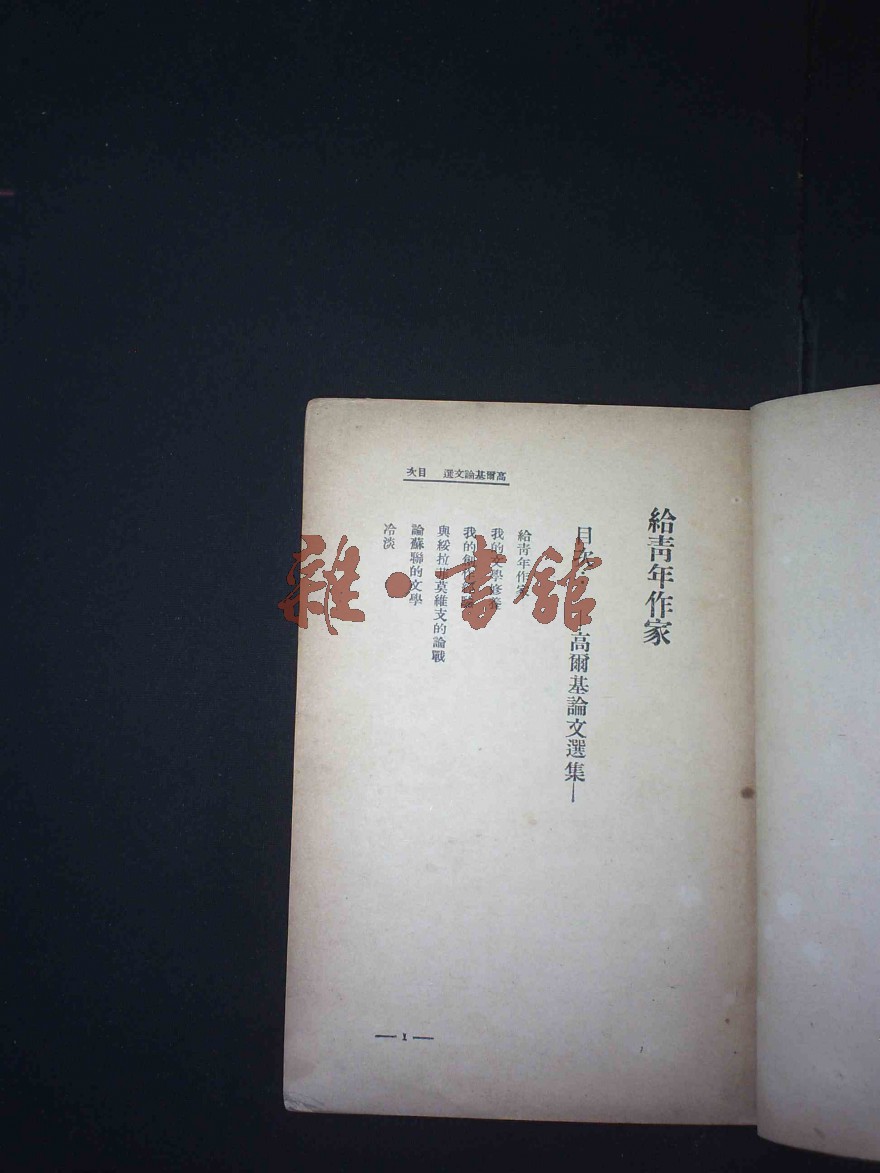 高爾基論文選　目次
給青年作家
目次——高爾基論文選集—
給青年作家
我的文學修養
我的創作經驗
與綏拉菲莫維支的論戰
論蘇聯的文學
冷淡
— 1 —
雜·書館